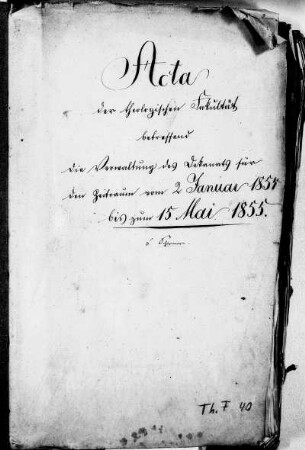 Acta
der theologischen Fakultät
betreffend
die Verwaltung des Dekanats für
den Zeitraum vom 2 Januar 1854
bis zum 15 Mai 1855.
Th. F 40